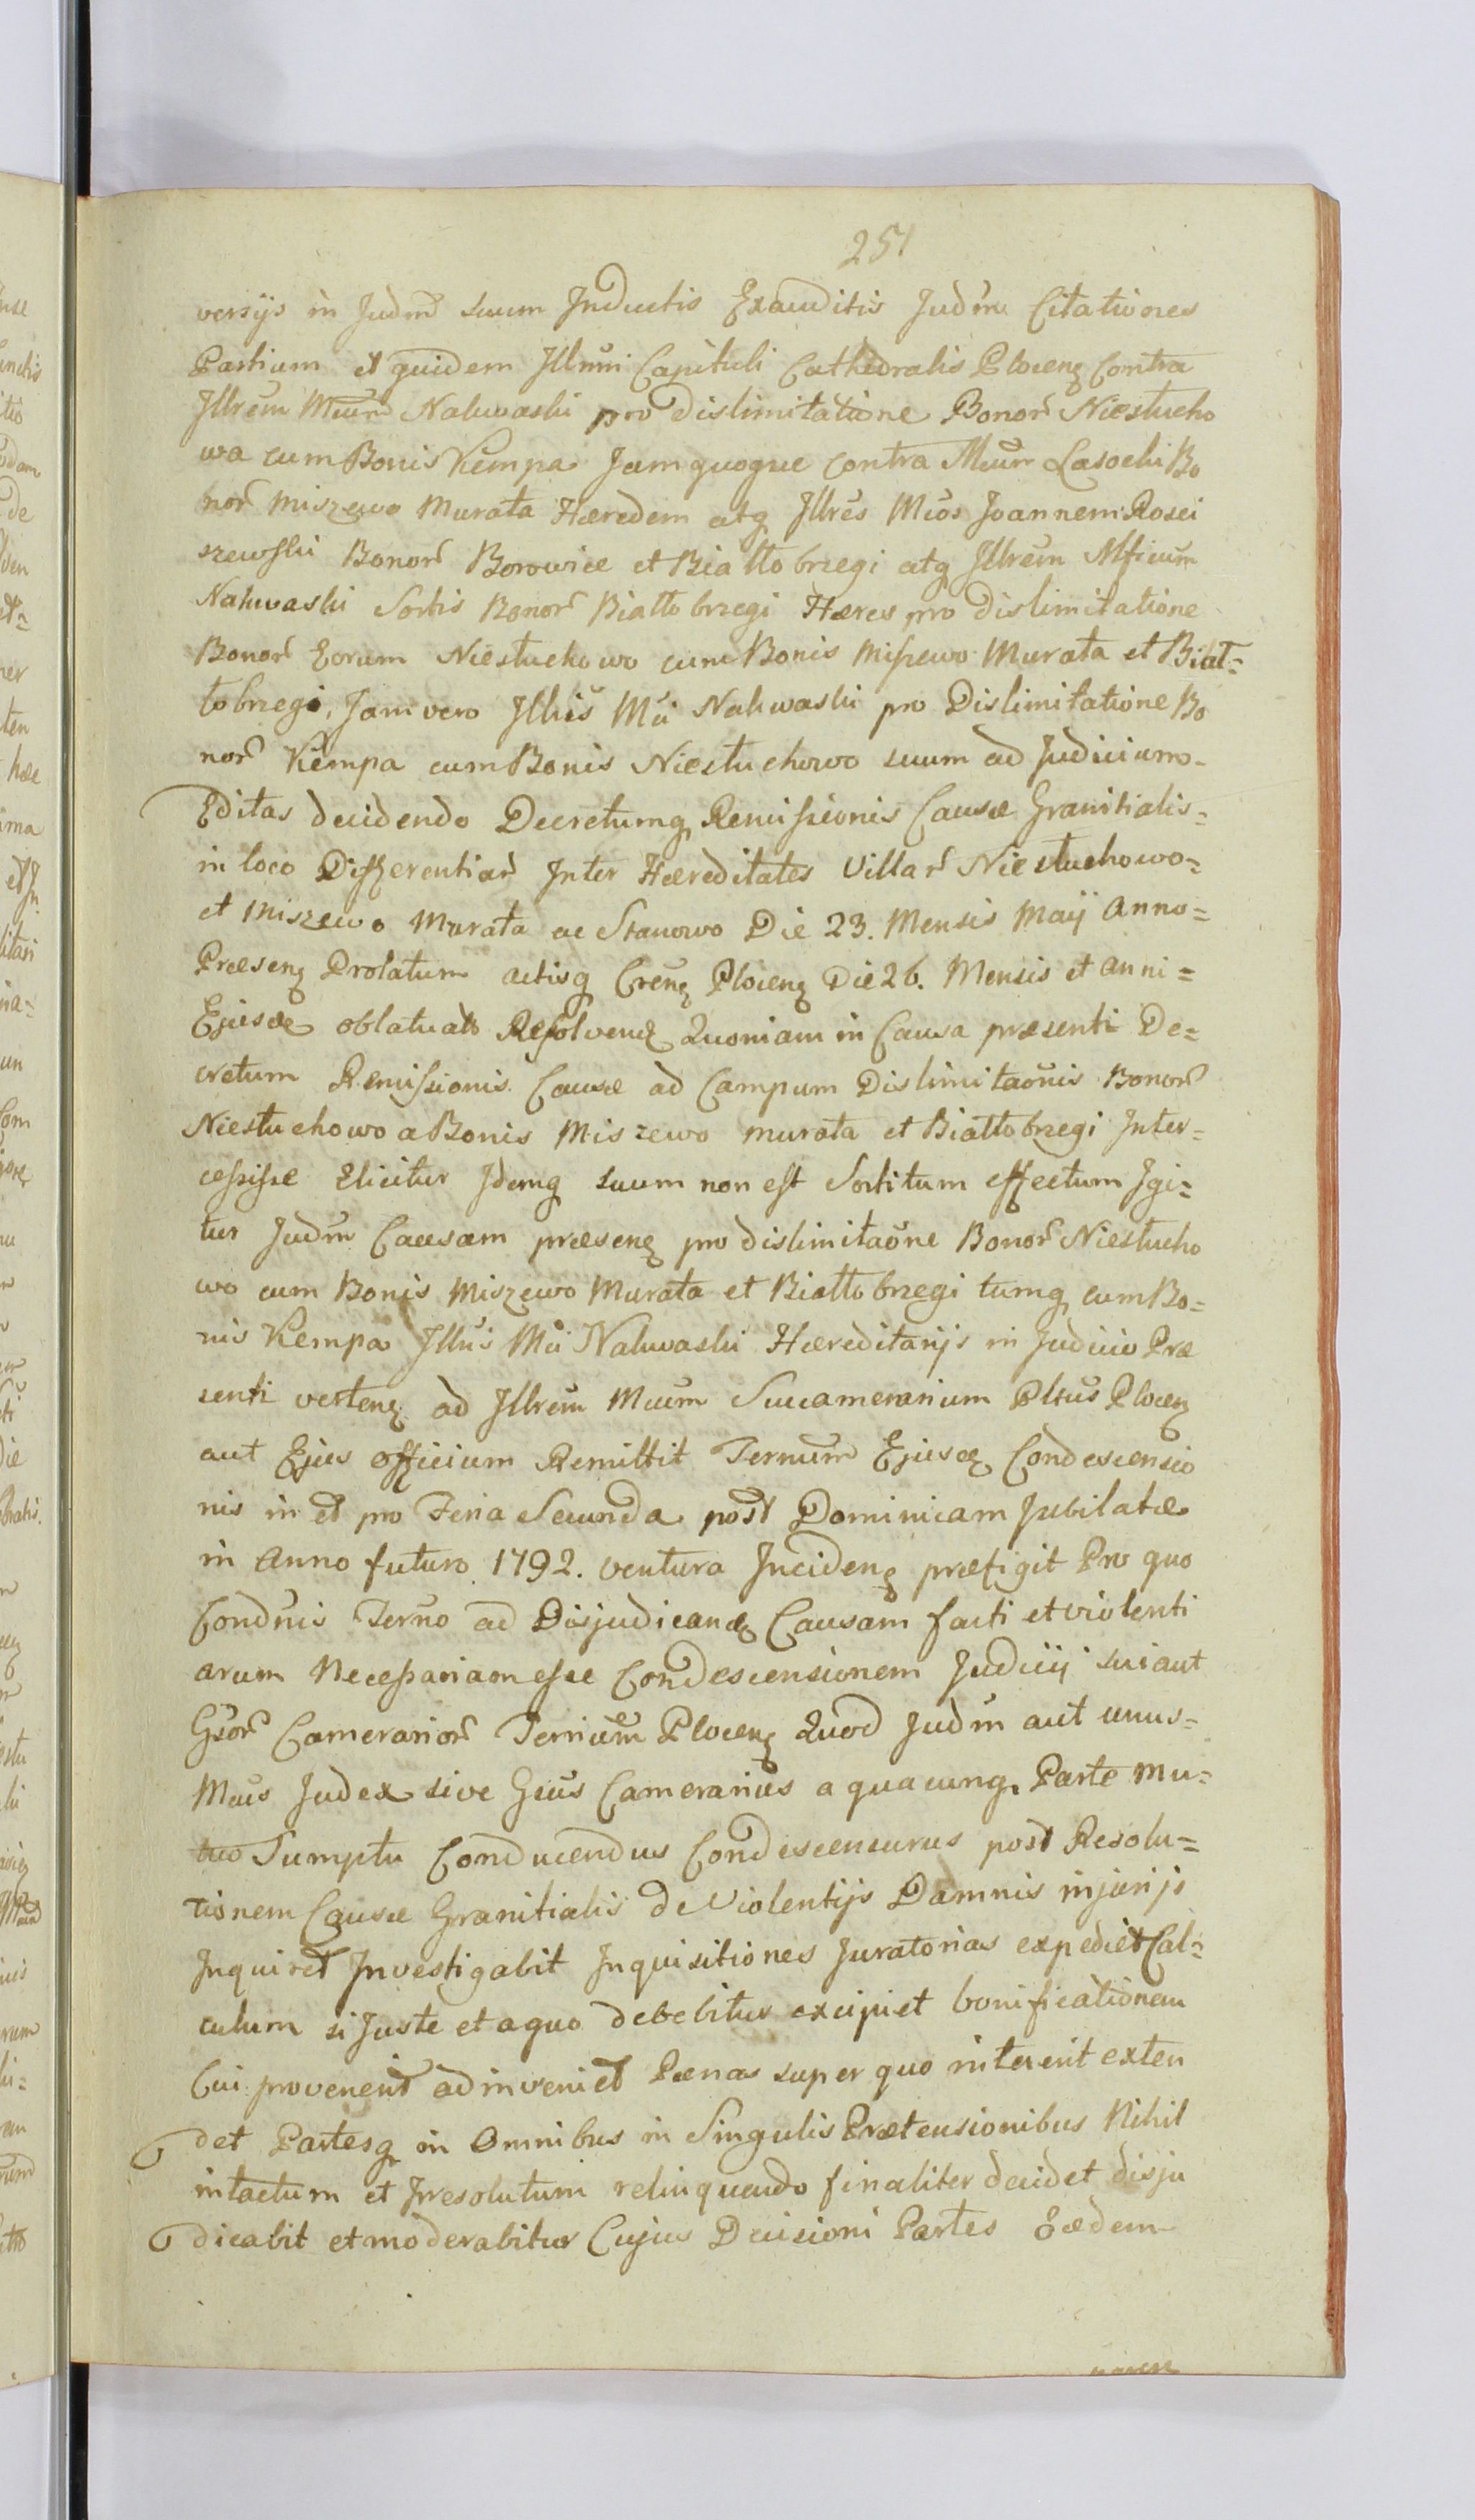 251
versijs in Judm̃ suum Inductis Exauditis Judm̃ Citationes
Partium et quidem Illmi Capituli Cathedralis Plocenꝫ Contra
Illrẽm Mcum̃ Nakwaski pro dislimitatione Bonor̃ Niestucho
wa cum Bonis Kempa Jamquoque contra Mcum̃ Lasocki Bo
nor̃ Miszewo Murata Hæredem atq Illrẽs Mc̃os Joannem Rosci
szewski Bonor̃ Borowice et Biallobrzegi atq Illrẽm Mficum
Nakwaski Sortis Bonor̃ Biallobrzegi Hæres pro dislimitatione
Bonor̃ Eorum Niestuchowo cum Bonis Miszewo Murata et Biał=
łobrzegi, Jam vero Illris̃ Mci Nakwaski pro Dislimitatione Bo
nor̃ Kempa cum Bonis Niestuchowo suum ad Judicium
Editas decidendo Decretumq Remissionis Causæ Granitialis=
in loco Differentiar̃ Inter Hæreditates Villar̃ Niestuchowo=
et Miszewo Murata ac Stanowo Die 23. Mensis Maij Anno=
Præsenꝫ Prolatum actisq Crenꝫ Plocenꝫ Die 26. Mensis et Anni=
Ejusdẽ oblatum Resolvendꝫ Quoniam in Causa præsenti De=
cretum Remissionis Causæ ad Campum Dislimitaõnis Bonor̃
Niestuchowo a Bonis Miszewo murata et Biallobrzegi Inter=
cessisse Elicitur Idemq suum non est Sortitum effectum Igi=
tur Judm̃ Causam præsenꝫ pro dislimitaõne Bonor̃ Niestucho
wo cum Bonis Miszewo Murata et Biallobrzegi tumq cum Bo=
nis Kempa Illris̃ Mci Nakwaski Hæreditarijs in Judicio Præ
senti vertenꝫ ad Illrem̃ Mcum Succamerarium Pltus̃ Plocenꝫ
aut Ejus officium Remittit Termum̃ Ejusdꝫ Condescensio
nis in et pro Feria Secunda post Dominicam Jubilatæ
in Anno futuro 1792. ventura Incidenꝫ præfigit Pro quo
Condnis̃ Terno̊ ad Disjudicandꝫ Causam facti et violenti
arum Necessariam esse Condescensionem Judicij sui aut
Gsor̃ Camerarior̃ Terrium̃ Plocenꝫ Quod Judm̃ aut unus=
Mcus Judex sive Gsus Camerarius a quacunq Parte mu=
tuo Sumptu Conducendus Condescensurus post Resolu=
tionem Causæ Granitialis de Violentijs Damnis injurijs
Inquiret Investigabit Inquisitiones Juratorias expediet Cal=
culum si Juste et a quo debebitur excipiet bonificationem
Cui provenerit adinveniet Pænas super quo intererit exten
det Partesq in Omnibus in Singulis Prætensionibus Nihil
intactum et Irresolutum relinquendo finaliter decidet disju
dicabit et moderabitur Cujus Decisioni Partes Eædem